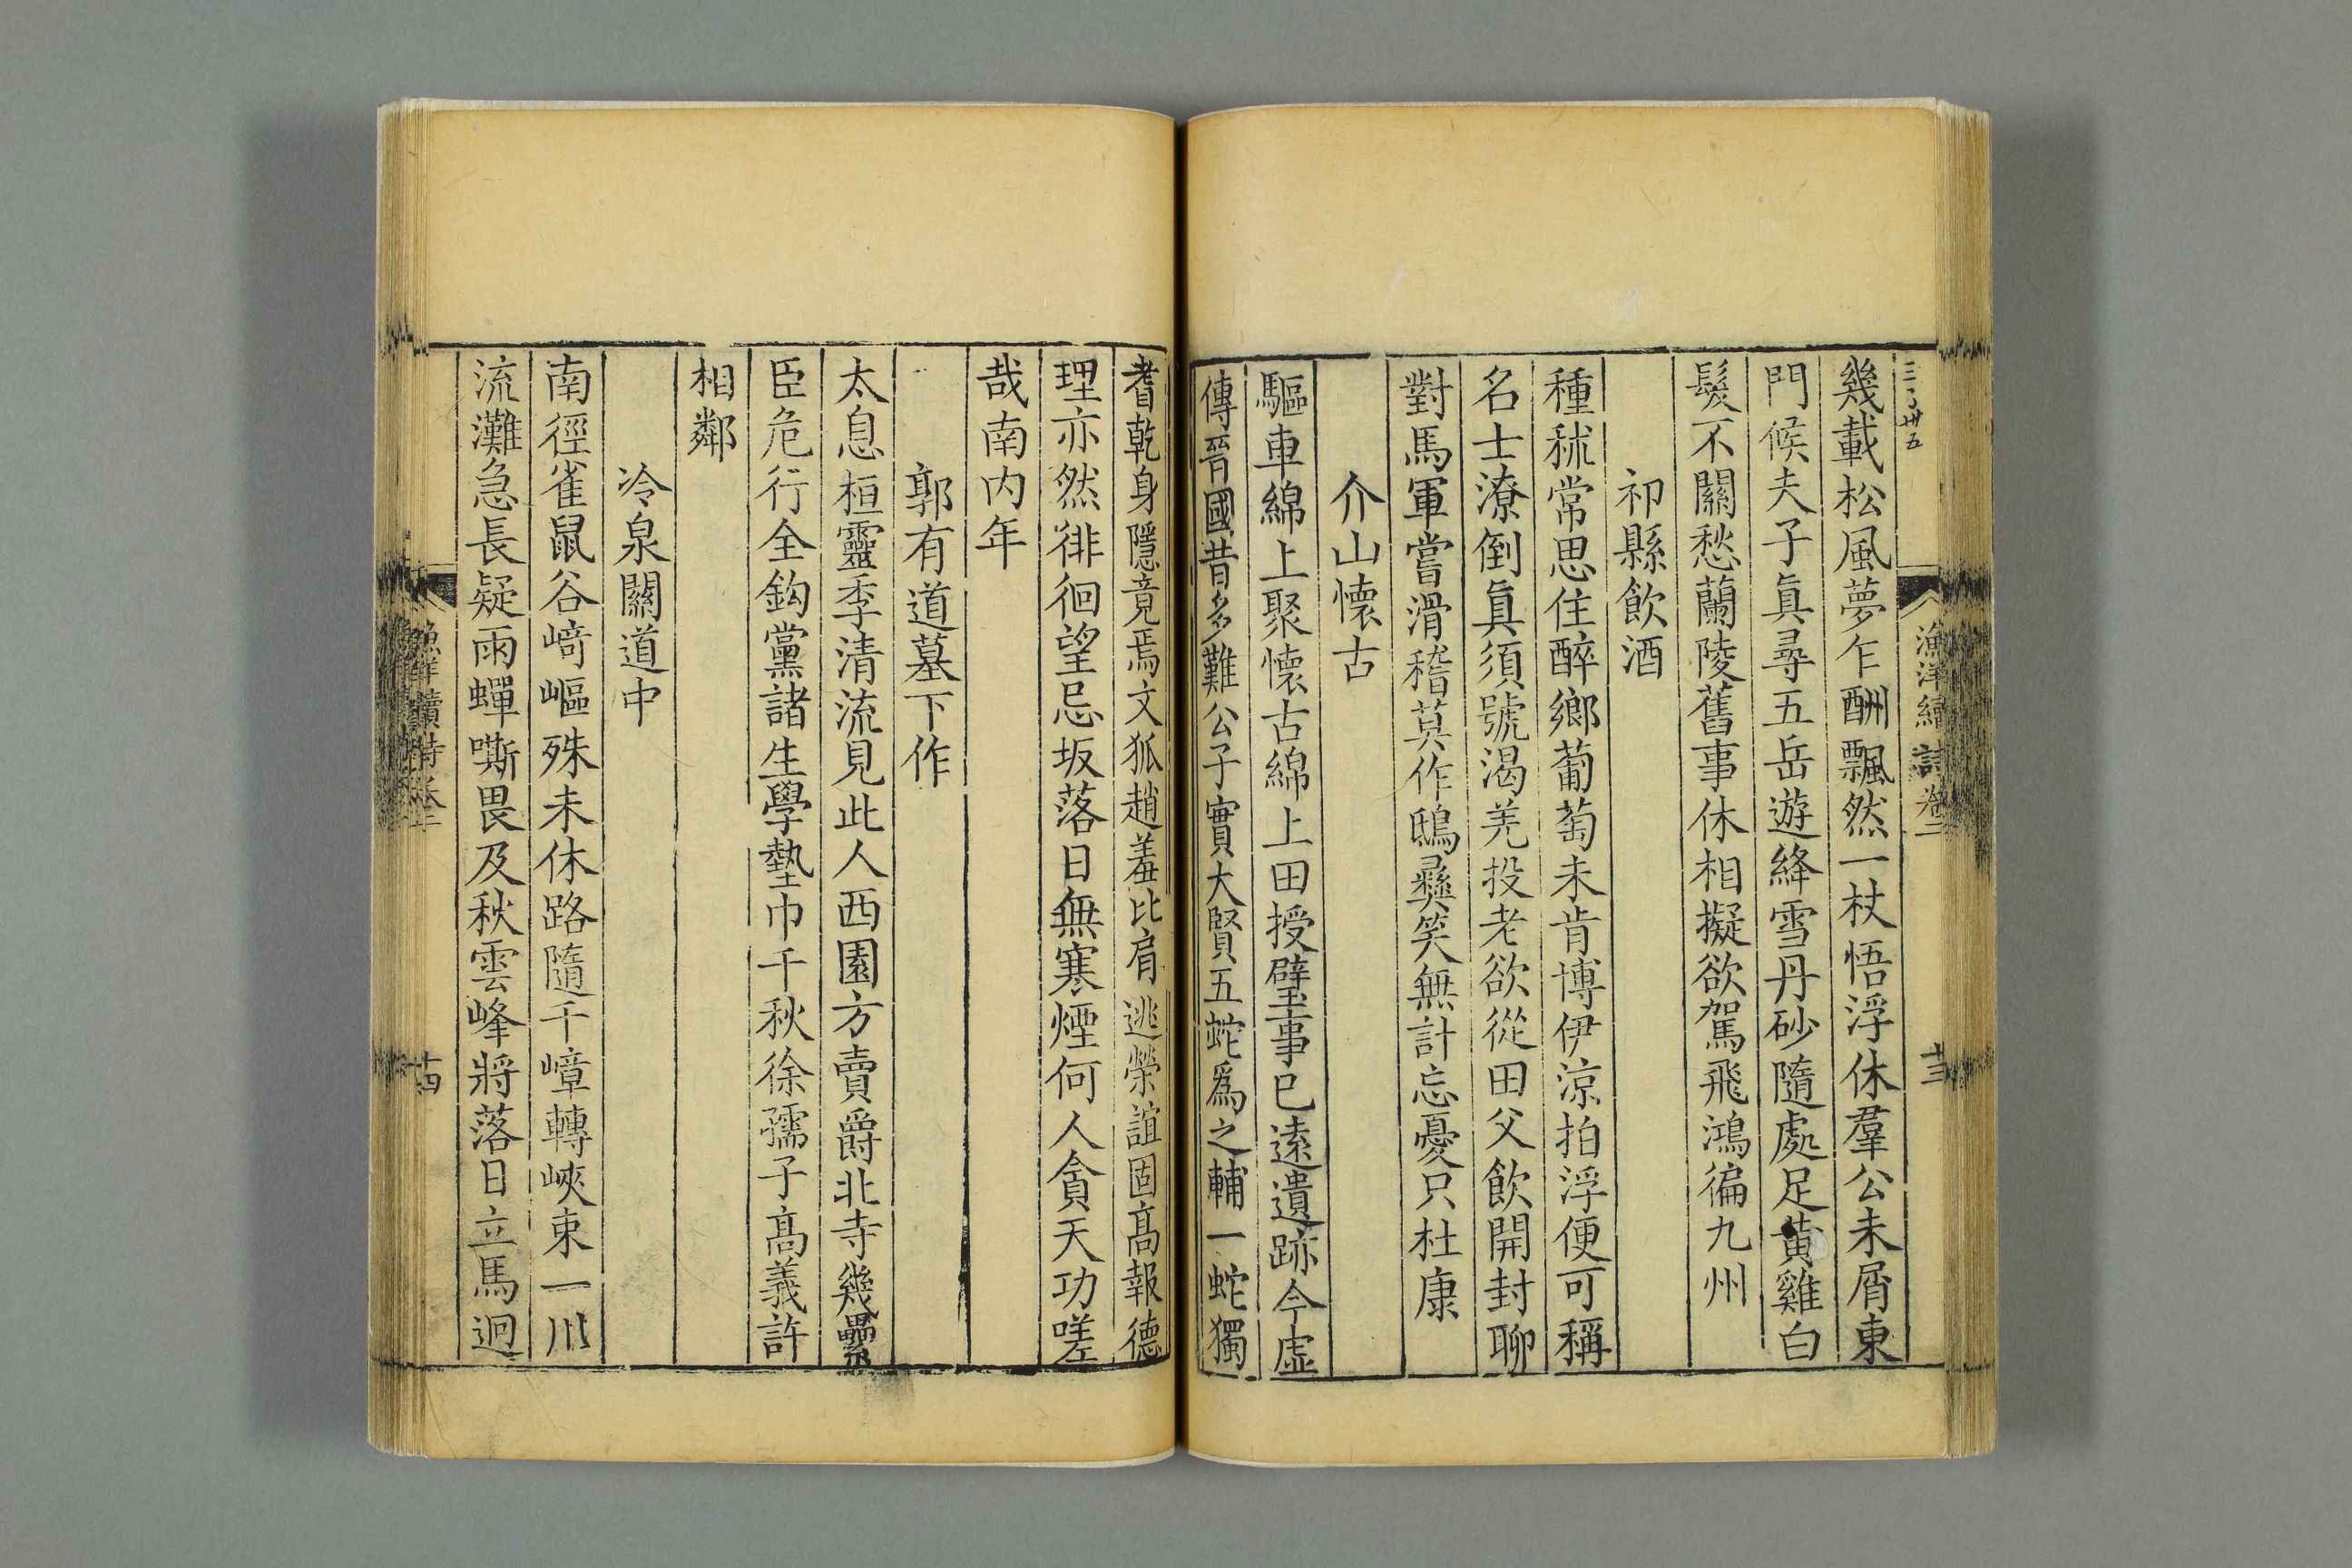 三丁卅五
漁洋續詩卷二
十三
幾載松風夢乍酬飄然一杖悟浮休羣公未屑東
門候夫子真尋五岳遊絳雪丹砂隨處足黄雞白
髮不關愁蘭陵舊事休相擬欲駕飛鴻徧九州
祁縣飲酒
種秫常思住醉鄉葡萄未肯博伊涼拍浮便可稱
名士潦倒真須號渴羌投老欲從田父飲開封聊
對馬軍嘗滑稽莫作鴟彝笑無計忘憂只杜康
介山懷古
驅車綿上聚懷古綿上田授璧事已遠遺跡今虛
傳晉國昔多難公子實大賢五蛇爲之輔一蛇獨
耆乾身隱竟焉文狐趙羞比肩逃榮誼固高報德
理亦然徘徊望忌坂落日無寒煙何人貪天功嗟
哉南内年
郭有道墓下作
太息桓靈季清流見此人西園方賣爵北寺幾纍
臣危行全鈎黨諸生學墊巾千秋徐孺子高義許
相鄰
冷泉關道中
南徑雀鼠谷﨑嶇殊未休路隨千嶂轉峽束一川
流灘急長疑雨蟬嘶畏及秋雲峰將落日立馬迴
漁洋續詩卷二
十四